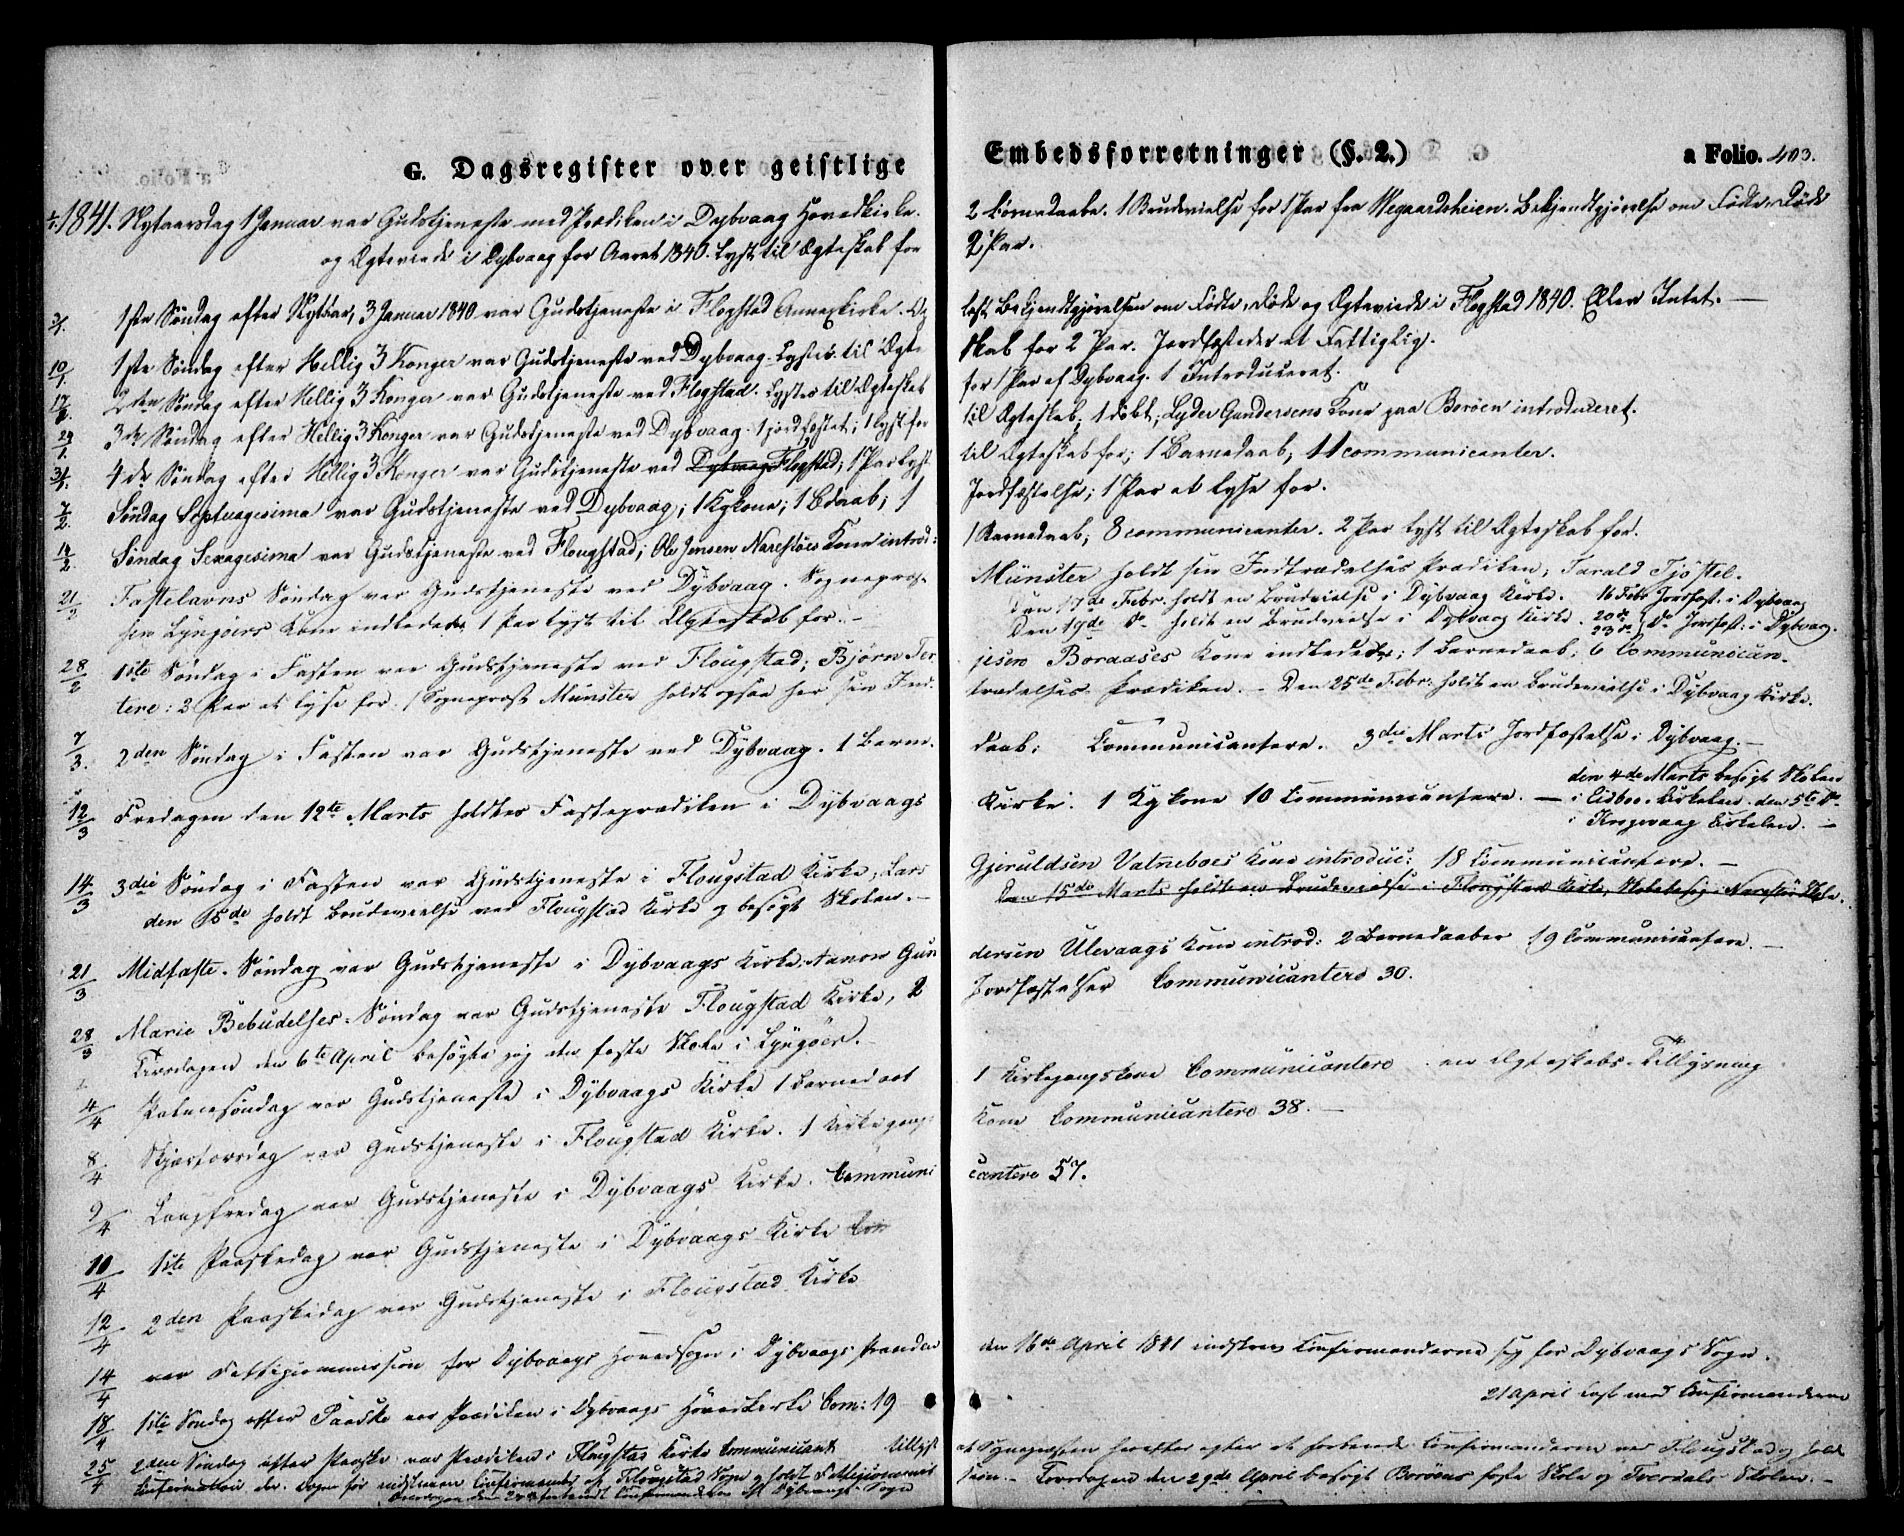 G. Dagsregister over geistlige
1/1 1841. Nytaarsdag 1 Januar var Gudstjeneste med Prædiken i Dybvaag Hovedkirke.
og Ægteviede i Dybvaag for Aaret 1840. Lyst til Ægteskab for
3/1. 1ste Søndag efter Nytaar, 3 Januar 1840 var Gudstjeneste i Flogstad Annexkirke.
10/1. 1ste Søndag efter Hellig 3 Konger var Gudstjeneste ved Dybvaag. Lystes til Ægte-
17/1. 2den Søndag efter Hellig 3 Konger var Gudstjeneste ved Flogstad. Lystes til Ægteskab
24/1. 3de Søndag efter Hellig 3 Konger var Gudstjeneste ved Dybvaag. 1 jordfæstet; 1 lyst for
31/1. 4de Søndag efter Hellig 3 Konger var Gudstjeneste ved Dybvaag Flogstad; 1 Par lyst
7/2. Søndag Septuagesima var Gudstjeneste ved Dybvaag; 1 Kgkone; 1 Bdaab; 1
14/2. Søndag Sexagesima var Gudstjeneste ved Flougstad; Ole Jensen Narestøes Kone introd:
21/2 Fastelavns Søndag var Gudstjeneste ved Dybvaag. Sognepræst
sen Lyngøers Kone indledet 1 Par lyst til Ægteskab for. -
28/2 1ste Søndag i Fasten var Gudstjeneste ved Flougstad; Bjørn Ter
tere: 2 Par at lyse for. / Sognepræst Münster holdt ogsaa her sin Ind-
7/3. 2den Søndag i Fasten var Gudstjeneste ved Dybvaag. 1 Barne-
12/3 Fredagen den 12te Marts holdtes Fasteprædiken i Dybvaags
14/3 3die Søndag i Fasten var Gudstjeneste i Flougstad Kirke, Lars
den 15de holdt Brudevielse ved Flougstad Kirke og besøgt Skolen. -
21/3 Midfaste-Søndag var Gudstjeneste i Dybvaags Kirke. Aanon Gun
28/3 Marie Bebudelses-Søndag var Gudstjeneste Flougstad Kirke, 2
Tirsdagen den 6te April besøgte jeg den faste Skole i Lyngøer. -
4/4 Palmesøndag var Gudstjeneste i Dybvaags Kirke 1 Barnedaab
8/4 Skjærtorsdag var Gudstjeneste i Flougstad Kirke. 1 Kirkegangs
9/4 Langfredag var Gudstjeneste i Dybvaags Kirke. Communi
11/4 1ste Paaskedag var Gudstjeneste i Dybvaags Kirke
12/4 2den Paaskedag var Gudstjeneste i Flougstad Kirke
14/4 var Fattigcommission for Dybvaags Hovedsogn i Dybvaags
18/4 1ste Søndag efter Paaske var Prædiken i Dybvaags Hovedkirke Com: 19
25/4 2den Søndag efter Paaske var Prædiken i Flougstad Kirke Communicant tillyst
Confirmation Sogn for indskreven Confirmander af Flougstad Sogn og holdt Fattigcommission
Confirmanderne af Dybvaags Sogn
Embedsforretninger (§. 2.) a Folio. 403.
2 Børnedaabe. 1 Brudevielse for 1 Par fra Wegaardsheien. Bekjendtgjørelse om Fødte, Døde
2 Par.
læst Bekjendtgjørelsen om Fødte, Døde og Ægteviede i Flogstad 1840. Ellers Intet. -
skab for 2 Par. Jordfæstedes et Fattiglig.
for 1 Par af Dybvaag. 1 Introduceret.
til Ægteskab; 1 døbt; Lyder Gundersens Kone paa Borøen introduceret.
til Ægteskab for; 1 Barnedaab, 11 communicanter.
Jordfæstelse; 1 Par at lyse for.
1 Barnedaab; 8 communicanter. 2 Par lyst til Ægteskab for.
Münster holdt sin Indtrædelses Prædiken; Tarald Tjøstel-
Den 17de Febr. holdt en Brudevielse i Dybvaag Kirke. 16 Febr Jordfæst. i Dybvaag
Den 19de do holdt en Brudevielse i Dybvaag Kirke. 20de 23de do Jordfæst: i Dybvaag.
jesen Boraases Kone indledet; 1 Barnedaab; 6 Communican-
trædelses Prædiken. - Den 25de Febr: holdt en Brudevielse i Dybvaag Kirke.
daab; Communicantere. 3die Marts Jordfæstelse i Dybvaag. -
den 4de Marts besøgt Skolen
Kirke. 1 Kgkone 10 Communicantere. - i Eidboe-Cirkelen. den 5te do
i Krogvaag Cirkelen. -
Gjeruldsen Vatneboes Kone introduc: 18 Communicantere. -
Den 15de Marts holdt en Brudevielse i Flougstad Kirke, Skolebesøg i Narestø Skole.
dersen Ulevaags Kone introd: 2 Barnedaaber 19 Communicantere. -
Jordfæstelser Communicantere 30.
1 Kirkegangskone Communicantere en Ægteskabs-Tillysning
Kone Communicantere 38. -
cantere 57.
den 16de April 1841 indskrev Confirmanderne sig for Dybvaags Sogn.
21 April læst med Confirmanderne
at Sognepræsten herefter agter at forberede Confirmanderne ved Flougstad og hold
sion. - Torsdagen den 29de April besøgt Borøens faste Skole og Tverdals Skolen. -